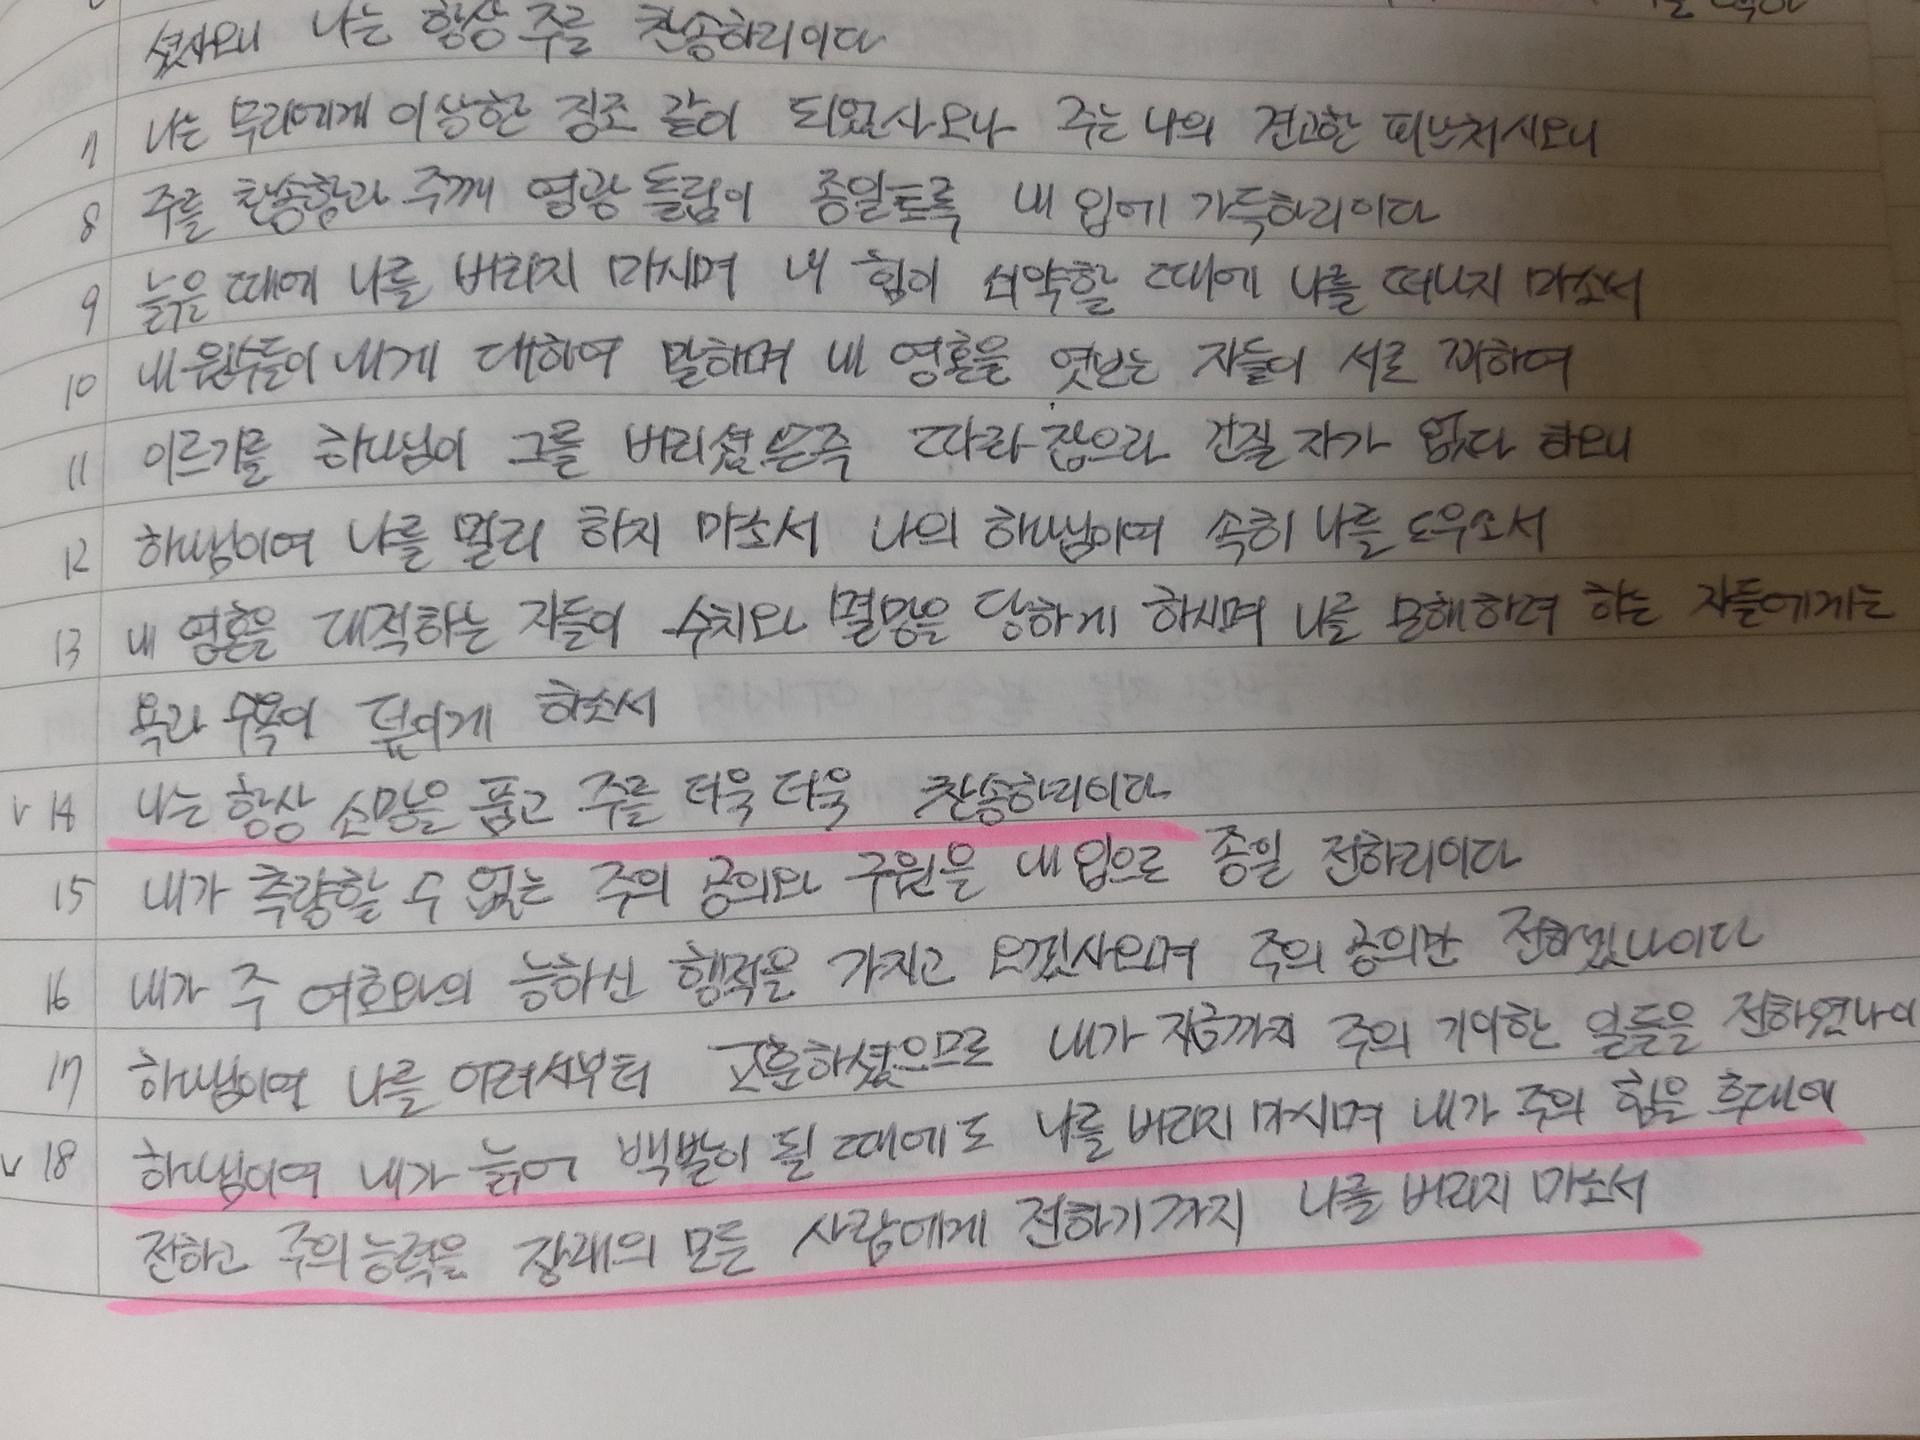 셨사오니 나는 항상 주를 찬송하리이다
7 나는 무리에게 이상한 징조 같이 되었사오나 주는 나의 견고한 피난처시오니
8 주를 찬송함과 주께 영광 돌림이 종일토록 내 입에 가득하리이다
9 늙을 때에 나를 버리지 마시며 내 힘이 쇠약할 때에 나를 떠나지 마소서
10 내 원수들이 내게 대하여 말하며 내 영혼을 엿보는 자들이 서로 꾀하여
11 이르기를 하나님이 그를 버리셨은즉 따라 잡으라 건질 자가 없다 하오니
12 하나님이여 나를 멀리 하지 마소서 나의 하나님이여 속히 나를 도우소서
13 내 영혼을 대적하는 자들이 수치와 멸망을 당하게 하시며 나를 모해하려 하는 자들에게는
욕과 수욕이 덮이게 하소서
v 14 나는 항상 소망을 품고 주를 더욱더욱 찬송하리이다
15 내가 측량할 수 없는 주의 공의와 구원을 내 입으로 종일 전하리이다
16 내가 주 여호와의 능하신 행적을 가지고 오겠사오며 주의 공의만 전하겠나이다
17 하나님이여 나를 어려서부터 교훈하셨으므로 내가 지금까지 주의 기이한 일들을 전하였나이
v 18 하나님이여 내가 늙어 백발이 될 때에도 나를 버리지 마시며 내가 주의 힘을 후대에
전하고 주의 능력을 장래의 모든 사람에게 전하기까지 나를 버리지 마소서